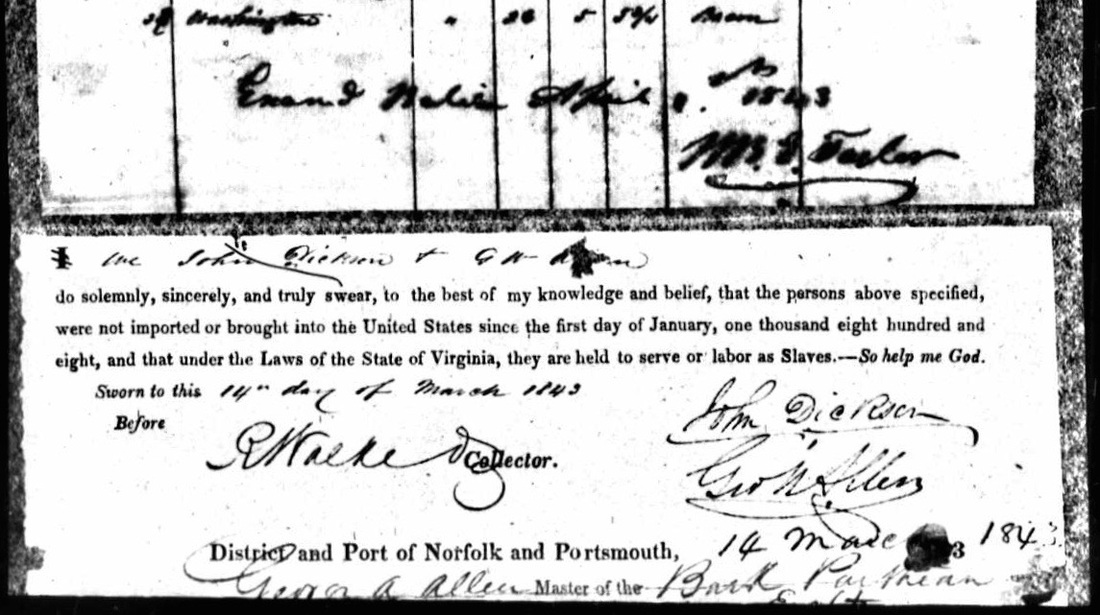 29 Washington " 26 5 5 3/4 Brown
Exam'd April 1843
Wm. G. Taylor
We John Dickson & G W Allen
do solemnly, sincerely, and truly swear, to the best of my knowledge and belief, that the persons above specified,
were not imported or brought into the United States since the first day of January, one thousand eight hundred and
eight, and that under the Laws of the State of Virginia, they are held to serve or labor as Slaves.—So help me God.
Sworn to this 14th day of March 1843
Before
John Dickson
R Walke D Collector.
Geo W Allen
District and Port of Norfolk and Portsmouth, 14 March 1843
George A Allen Master of the Bark Parthean